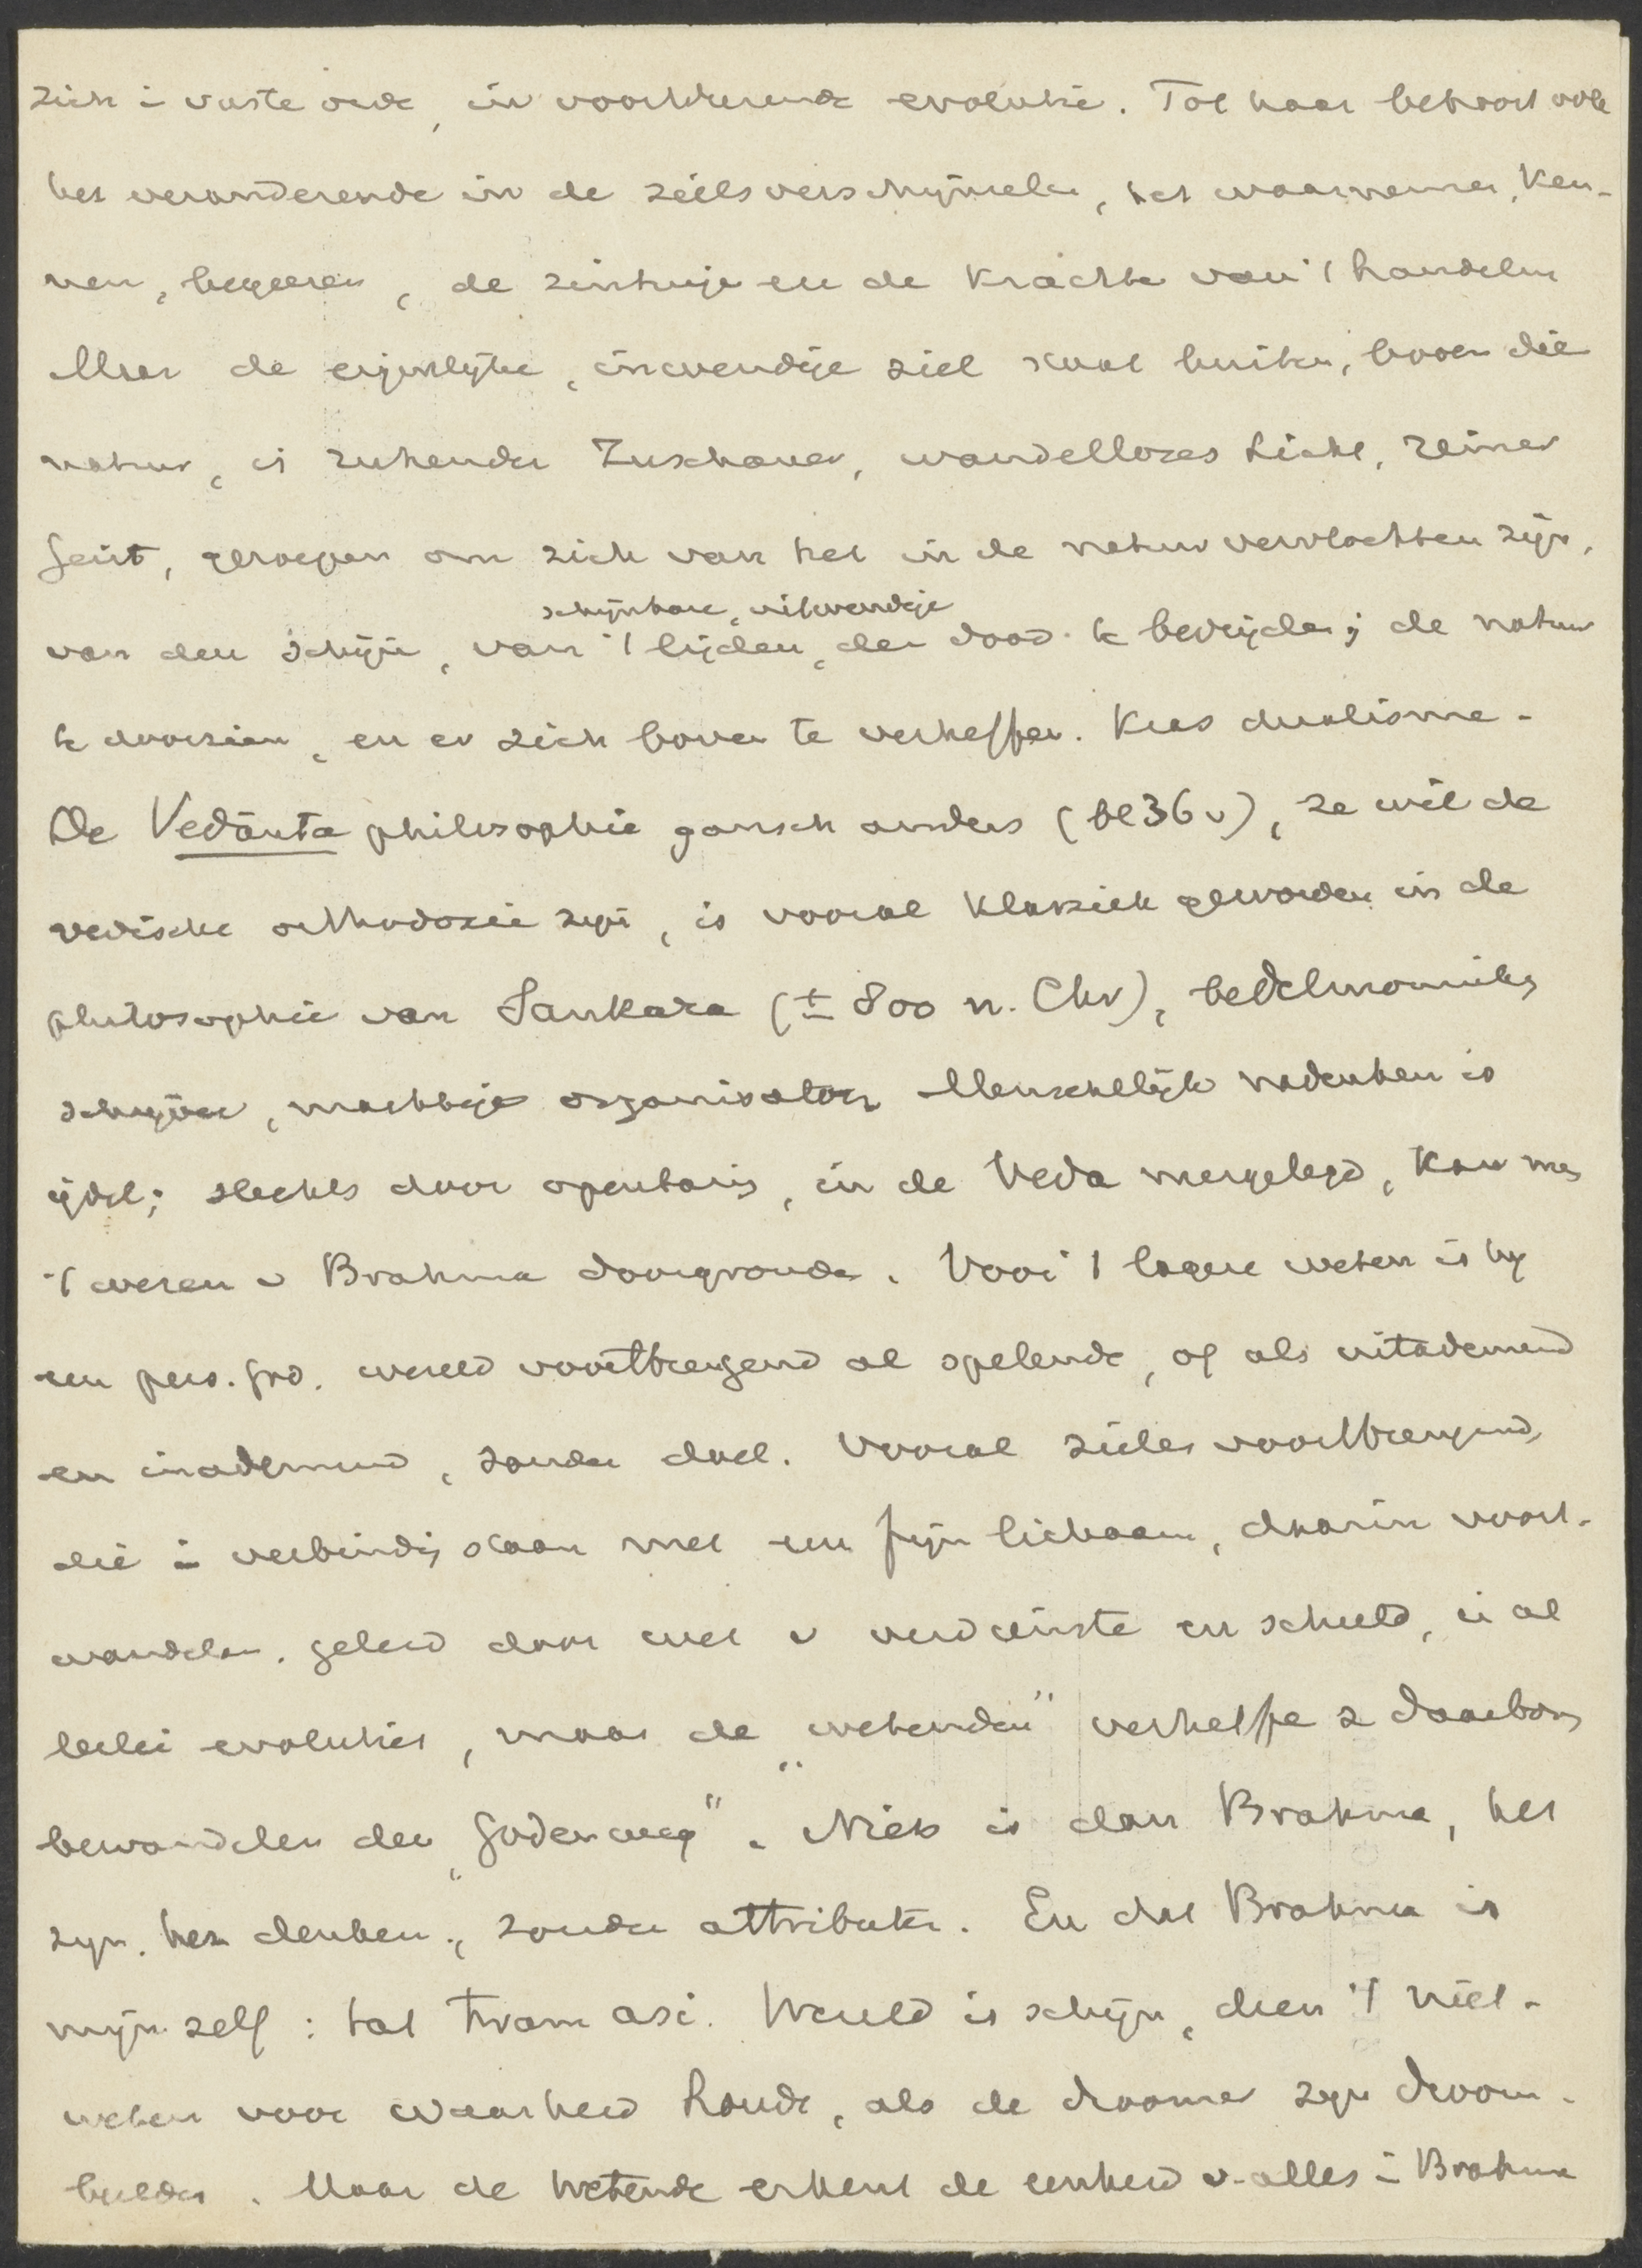 zich i vaste orde, in voortdurende evolutie. Tot haar behoort ook
het veranderende in de zielsverschijnselen, het waarnemen, ken-
nen, begeeren, de zintuige en de krachte van 't handelen
Maar de eigenlijke, inwendige ziel staat buiten, boven die
natuur, is ruhender Zuschauer, wandelloses Licht, reiner
Geist, geroepen om zich van het in de natuur vervlochten zijn,
van den schijn, van 't schijnbare, uitwendige lijden, den dood te bevrijden; de natuur
te doorzien, en er zich boven te verheffen. Kras dualisme.
De Vedânta philosophie gansch anders (bl 36 v), ze wil de
vedische orthodoxie zijn, is vooral klassiek geworden in de
philosophie van Sankara (± 800 n. Chr), bedelmonniks
schrijver, machtige organisator. Menschelijk nadenken is
ijdel; slechts door openbaring, in de Veda neergelegd, kan men
't wezen v Brahma doorgronden. Voor 't lagere weten is hij
een pers. god. wereld voortbrengend al spelende, of als uitademend
en inademend, zonder doel. Vooral zielen voortbrengend,
die i verbinding staan met een fijn lichaam, daarin voort-
wandelen. geleid door wet v verdienste en schuld, in al
lerlei evoluties, maar de "wetenden" verheffe z daarboven
bewandelen den "Godenweg". Niets is dan Brahma, het
zijn. het denken., zonder attributen. En dat Brahma is
mijn zelf: tat tvam asi. Wereld is schijn, dien 't niet-
weten voor waarheid houdt, als de droomer zijn droom-
beelden. Maar de wetende erkent de eenheid v. alles i Brahma